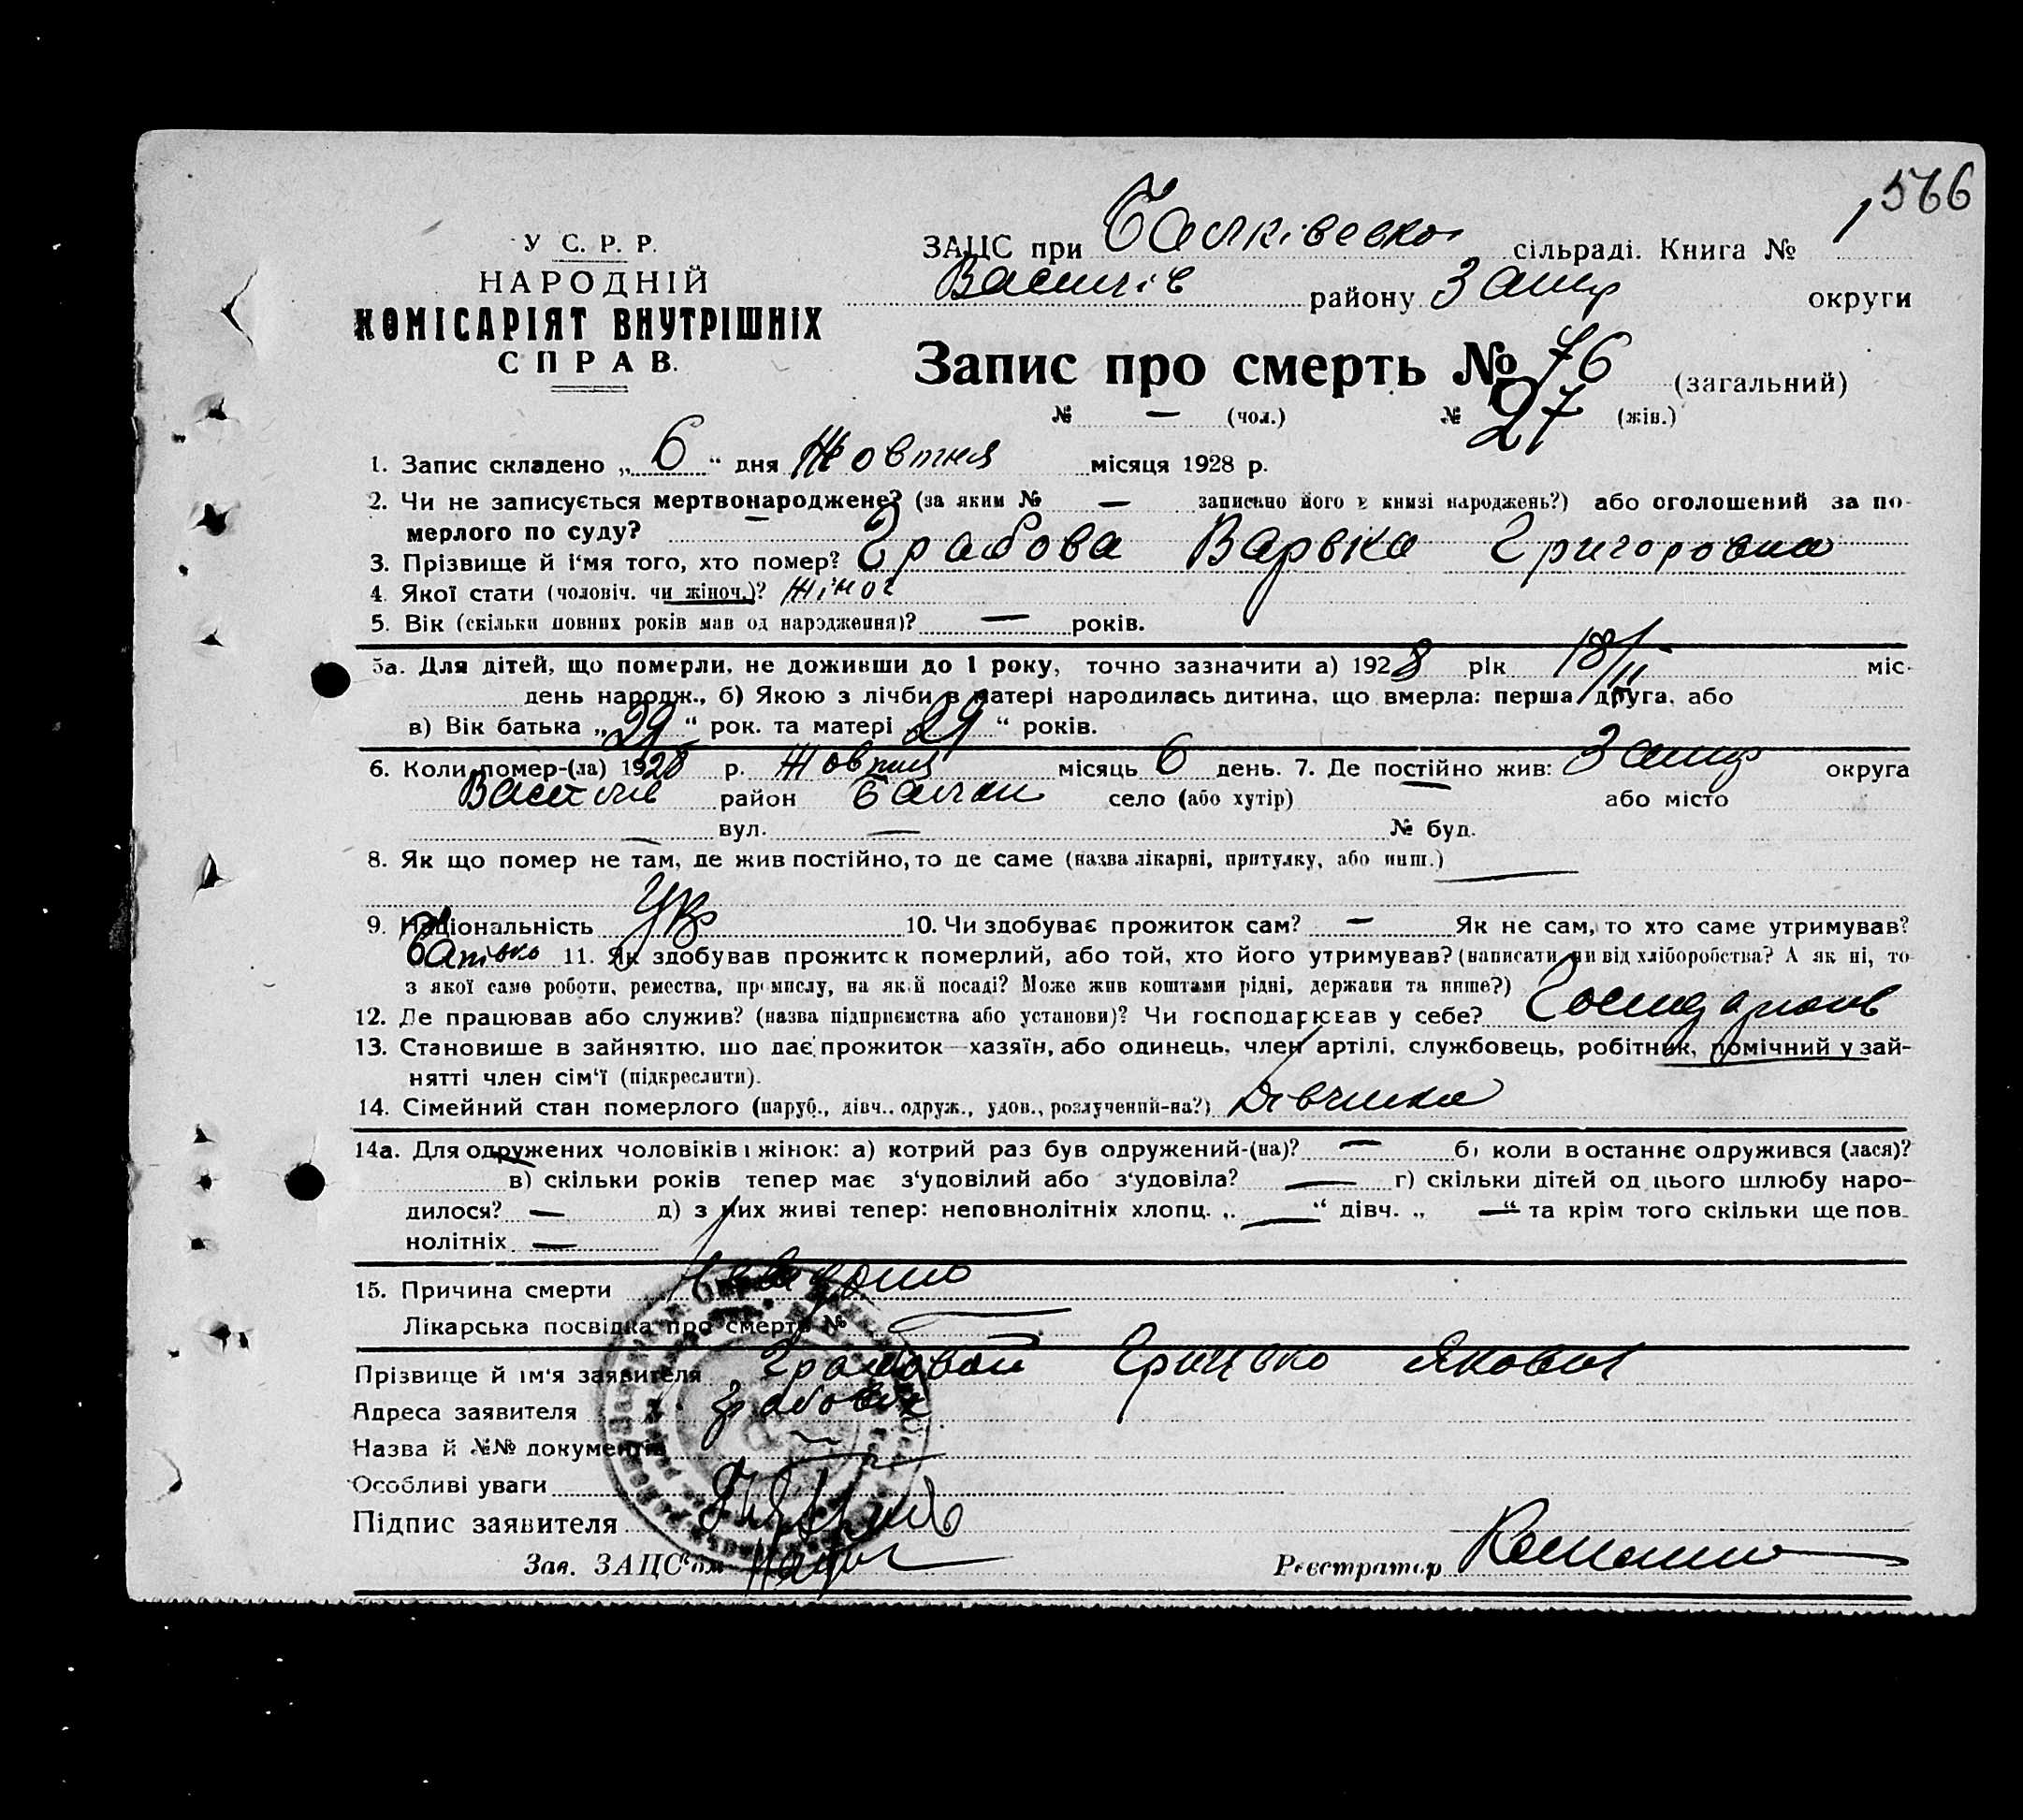 566
У С. Р. Р.
НАРОДНІЙ
КОМІСАРІЯТ ВНУТРІШНІХ
СПРАВ.
ЗАЦС при Балківской сільраді. Книга № 1
Василів району Запор округи
Запис про смерть № 76 (загальний)
№ — (чол.) № 27 (жін.)
1. Запис складено „ 6 “ дня Жовтня місяця 1928 р.
2. Чи не записується мертвонароджене? (за яким № — записано його в книзі народжень?) або оголошений за по-
мерлого по суду? —
3. Прізвище й і‘мя того, хто помер? Грабова Варька Григоровна
4. Якої стати (чоловіч. чи жіноч.)? Жіноч
5. Вік (скільки повних років мав од народження)? — років.
5а. Для дітей, що померли, не доживши до 1 року, точно зазначити а) 1928 рік 18/II міс-
день народж., б) Якою з лічби в матері народилась дитина, що вмерла: перша, друга, або
в) Вік батька „29“ рок. та матері 29 “ років.
6. Коли помер-(ла) 1928 р. Жовтня місяць 6 день. 7. Де постійно жив: Запор округа
Василів район Балки село (або хутір) — або місто
— вул. — № буд.
8. Як що помер не там, де жив постійно, то де саме (назва лікарні, притулку, або инш.) —
9. Національність Укр 10. Чи здобуває прожиток сам? — Як не сам, то хто саме утримував?
Батько 11. Як здобував прожиток померлий, або той, хто його утримував? (написати чи від хліборобства? А як ні, то
з якої саме роботи, ремества, промислу, на якій посаді? Може жив коштами рідні, держави та инше?)
12. Де працював або служив? (назва підприємства або установи)? Чи господарював у себе? Господарюв
13. Становище в зайняттю, що дає прожиток—хазяїн, або одинець, член артілі, службовець, робітник, помічний у зай-
нятті член сім‘ї (підкреслити).
14. Сімейний стан померлого (паруб., дівч., одруж., удов., розлучений-на?) Дівчинка
14а. Для одружених чоловіків і жінок: а) котрий раз був одружений-(на)? — б) коли востаннє одружився (лася)?
— в) скільки років тепер має з‘удовілий або з‘удовіла? — г) скільки дітей од цього шлюбу наро-
дилося? — д) з них живі тепер: неповнолітніх хлопц. „ — “ дівч. „ — “ та крім того скільки ще пов-
нолітніх —
15. Причина смерти
Лікарська посвідка про смерть № —
Прізвище й ім‘я заявителя Грабовай Грицько Якович
Адреса заявителя
Назва й №№ документів —
Особливі уваги
Підпис заявителя
Зав. ЗАЦС‘ом
Реєстратор